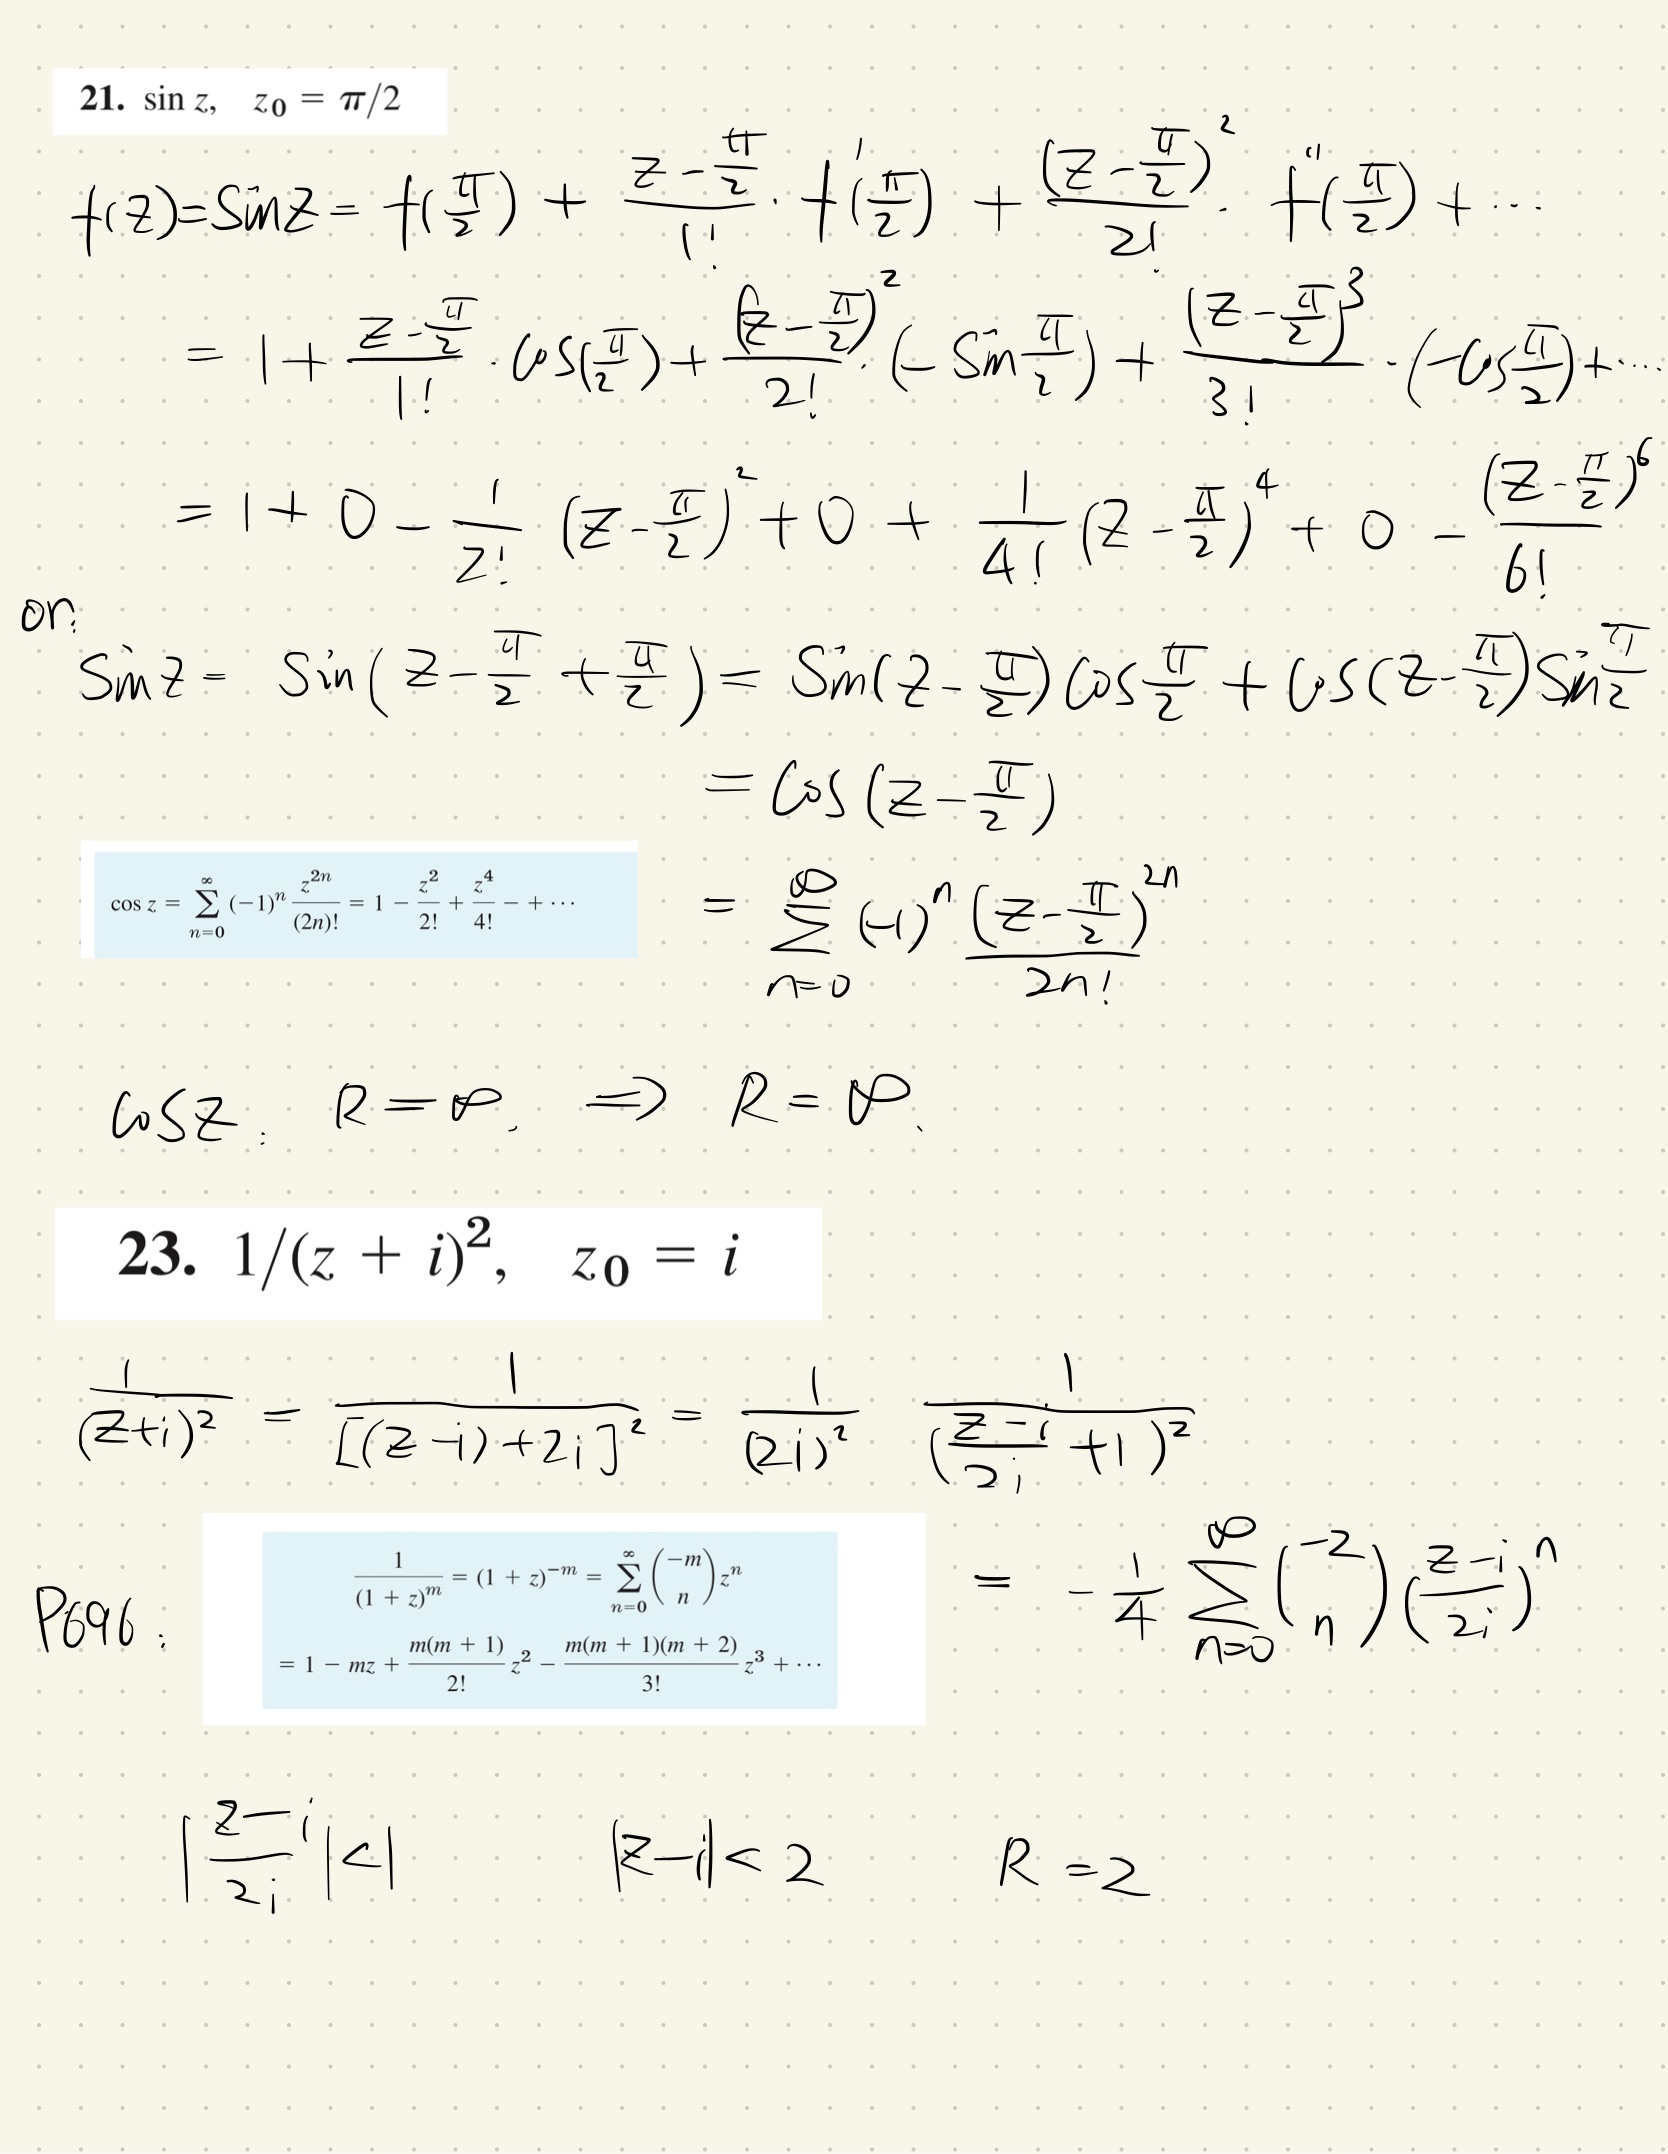 21. sin z, z₀ = π/2
f(z)=Sinz = f(π/2) + (z-π/2)/1! · f'(π/2) + (z-π/2)²/2! · f''(π/2) + ...
= 1 + (z-π/2)/1! · cos(π/2) + (z-π/2)²/2! · (-Sin π/2) + (z-π/2)³/3! · (-cos π/2) + ...
= 1 + 0 - 1/2! (z-π/2)² + 0 + 1/4! (z-π/2)⁴ + 0 - (z-π/2)⁶/6!
or:
Sinz = Sin(z-π/2+π/2) = Sin(z-π/2)cos π/2 + cos(z-π/2)Sin π/2
= cos(z-π/2)
cos z = ∑_{n=0}^{∞} (−1)ⁿ z²ⁿ/(2n)! = 1 − z²/2! + z⁴/4! − + ···
= ∑_{n=0}^{∞} (-1)ⁿ (z-π/2)²ⁿ/2n!
cosz: R=∞. ⇒ R=∞.
23. 1/(z + i)², z₀ = i
1/(z+i)² = 1/[(z-i)+2i]² = 1/(2i)² 1/((z-i)/2i +1)²
P696:
1/(1 + z)ᵐ = (1 + z)⁻ᵐ = ∑_{n=0}^{∞} (−m n) zⁿ
= 1 − mz + m(m + 1)/2! z² − m(m + 1)(m + 2)/3! z³ + ···
= -1/4 ∑_{n=0}^{∞} (-2 n) ((z-i)/2i)ⁿ
|(z-i)/2i|<1 |z-i|<2 R=2